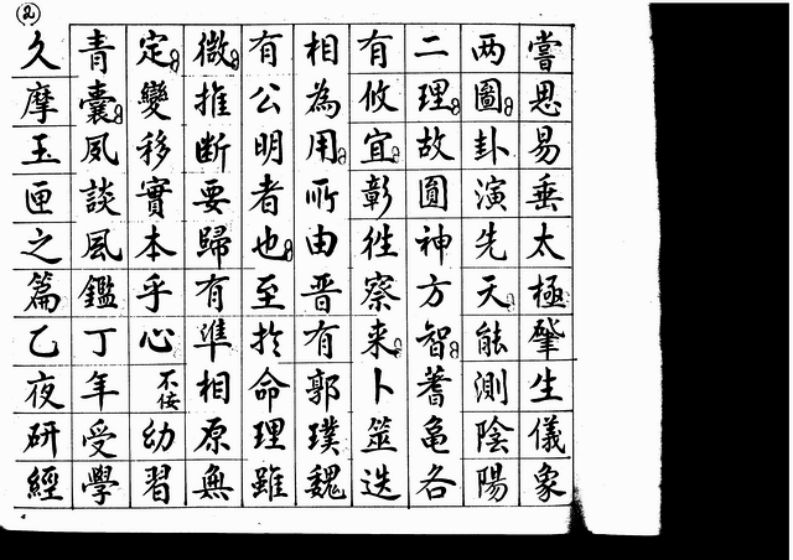 ②
嘗思易垂太極肇生儀象
两圖卦演先天能測陰陽
二理故圓神方智蓍龜各
有攸宜彰徃察来卜筮迭
相為用所由晋有郭璞魏
有公明者也至扵命理雖
微推断要歸有準相原無
定變移實本乎心不佞幼習
青囊夙談風鑑丁年受學
久摩玉匣之篇乙夜研經